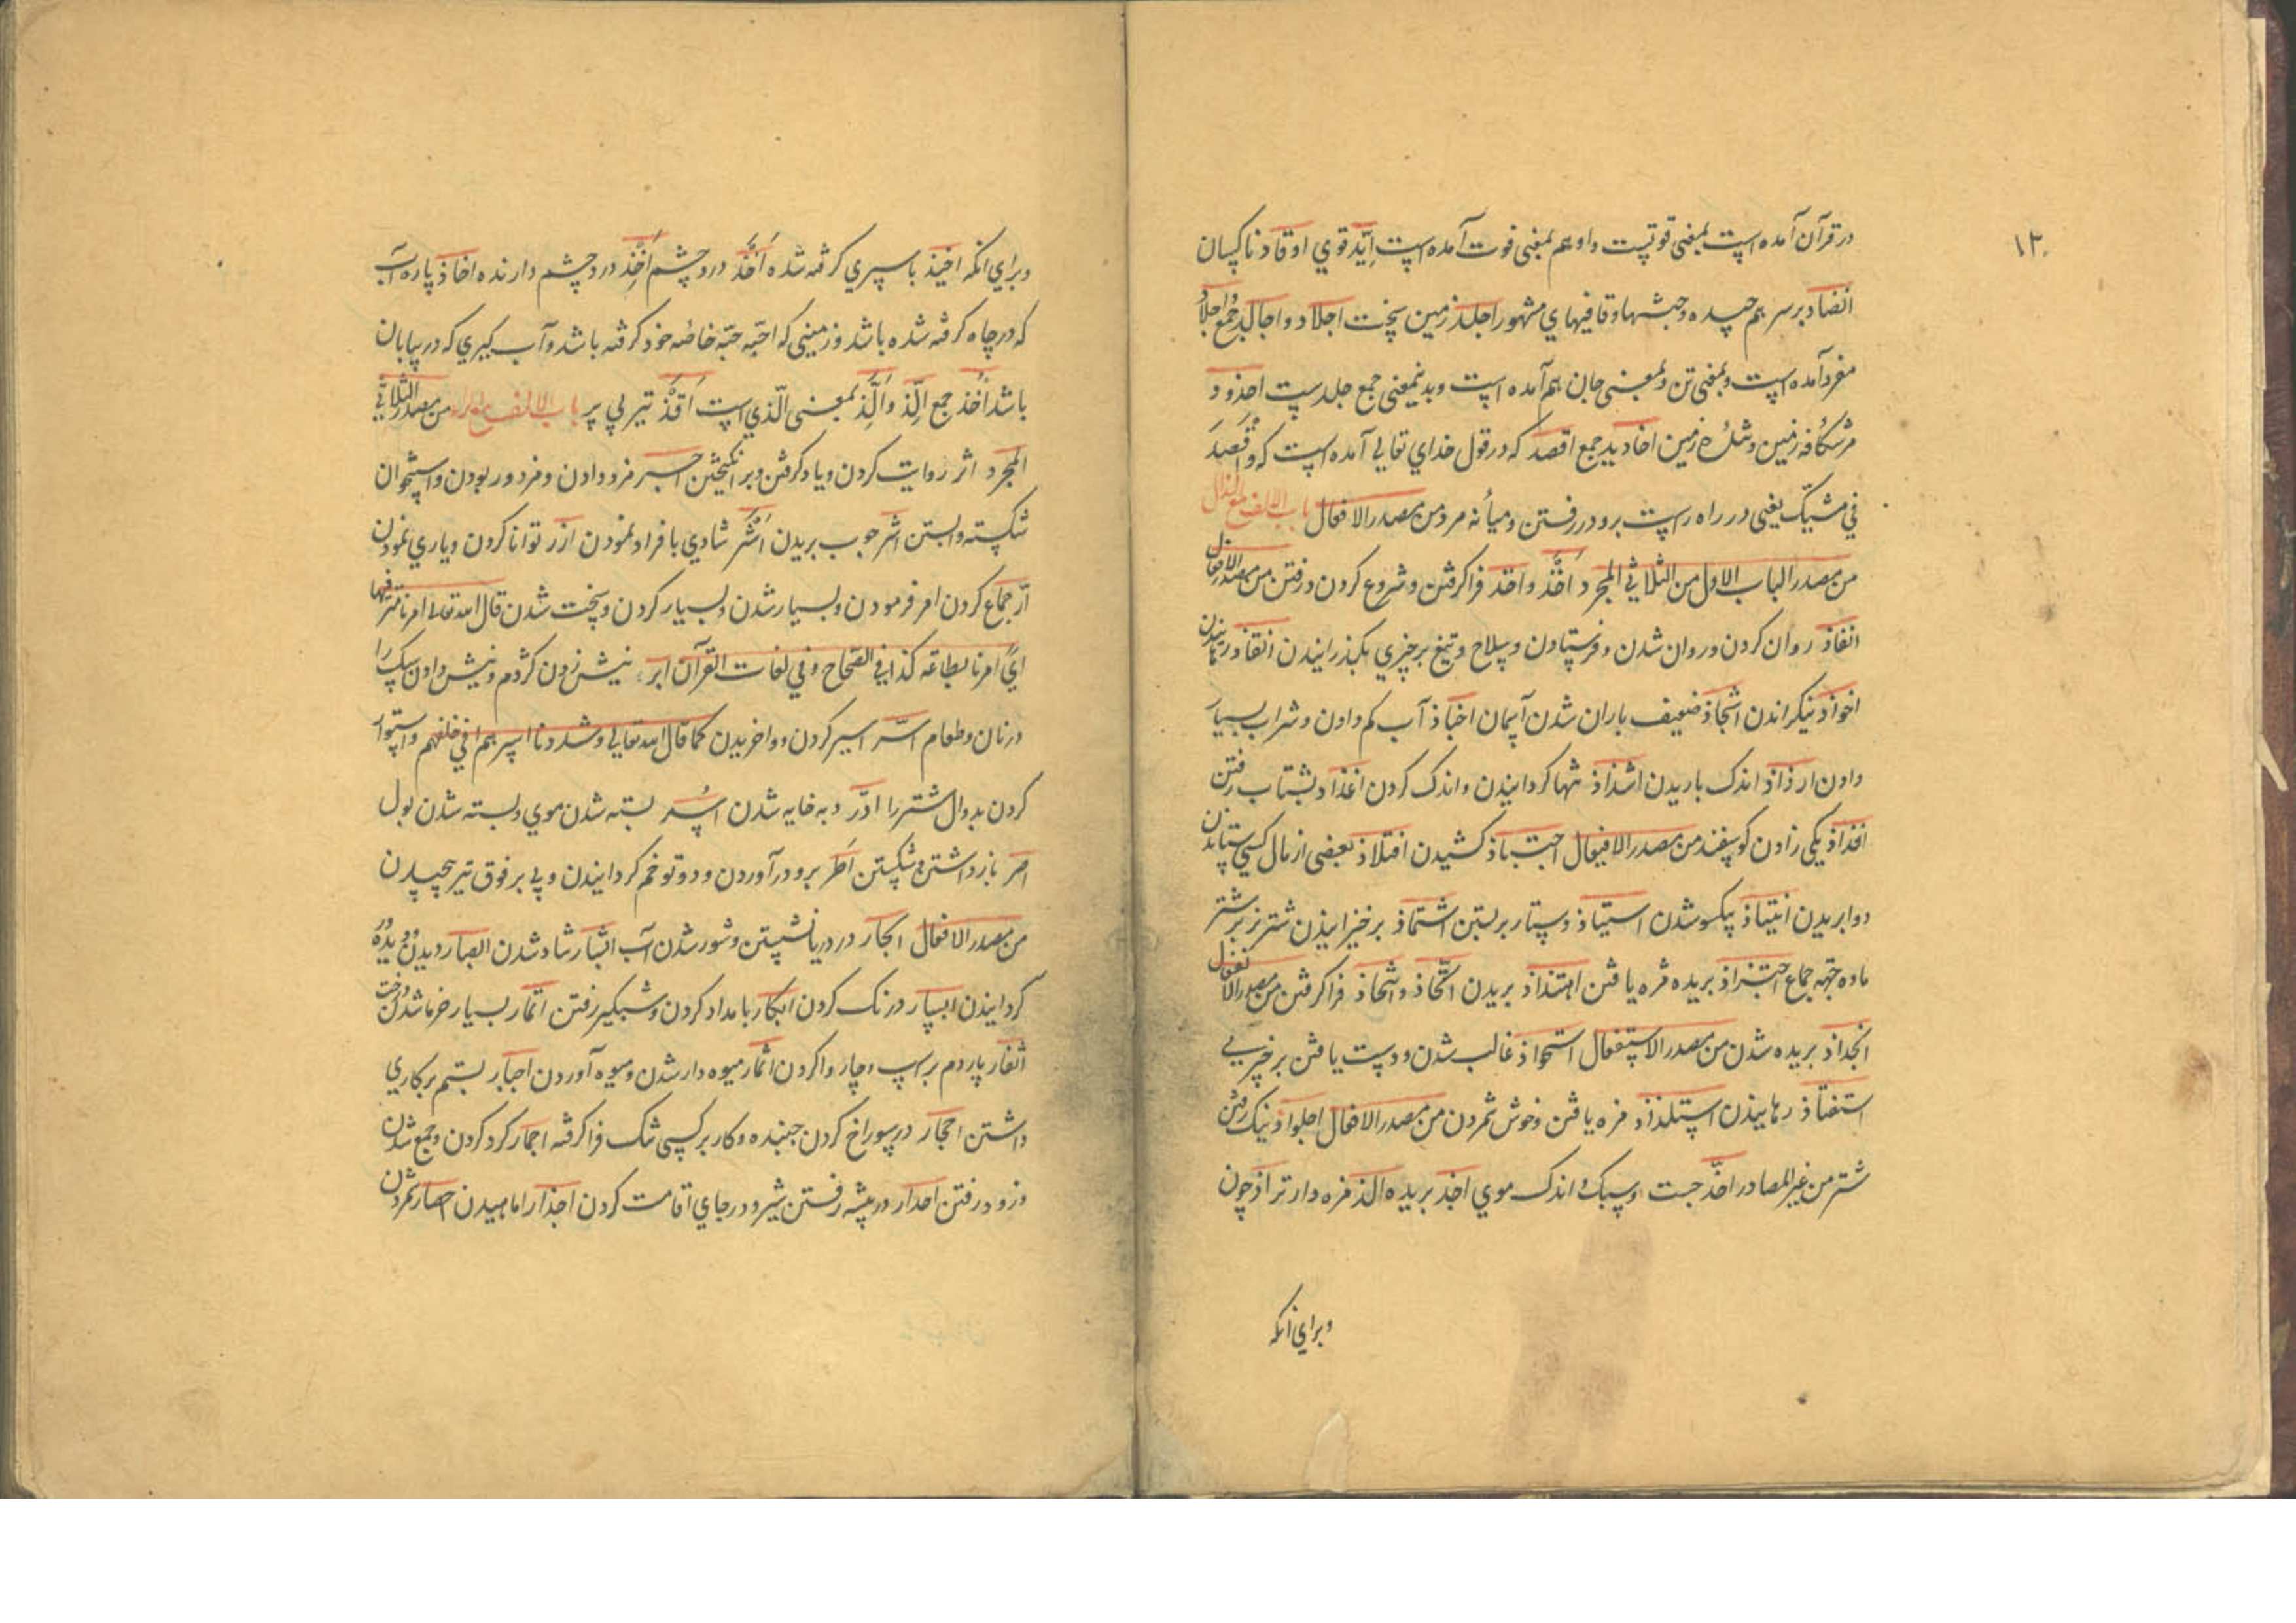 ۱۳
در قرآن آمده است بمعنی قوتست واو هم بمعنی قوت آمده است اِیّد قوي اوقاد ناکسان
انضاد برسر هم چیده و جثتها و قافیهاي مشهور اجلد زمین سخت اجلاد و اجالد جمع و اجلاد
مفرد آمده است و بمعنی تن و بمعنی جان هم آمده است و بدینمعنی جمع جلد ست اخدود
مرشکافه زمین و شله زمین اخادید جمع اقصد که در قول خداي تعالی آمده است که واقصد
في مشیک یعنی در راه راست برو در رفتن و میانه مرو من مصدر الافعال باب الالف مع الذال
من مصدر الباب الاول من الثلاثي المجرد اَخْذ و اخذ فراکرفتن و شروع کردن در فتن من مصدر الافعال
انفاذ روان کردن و روان شدن و فرستادن و سلاح و تیغ بر چیزي بکذرانیدن انقاذ و رهانیدن
اخواذ نیکراندن اشجاذ ضعیف باران شدن آسمان اخباذ آب کم دادن و شراب بسیار
دادن ارذاذ اندک باریدن اشذاذ تنها کردانیدن و اندک کردن اغذاذ بشتاب رفتن
افذاذ یکی زادن کوسفند من مصدر الافتعال اجتباذ کشیدن افتلاذ بعضی از مال کسی ستاندن
دوا بریدن انتباذ یکسو شدن استیاذ دستار بر بستن اشتماذ برخیزانیدن شتر نر بر شتر
ماده جهة جماع اجتذاذ بریده مزه یافتن اهتذاذ بریدن اتّخاذ و اتخاذ فراکرفتن من مصدر الانفعال
انجذاذ بریده شدن من مصدر الاستفعال استحواذ غالب شدن و دست یافتن بر چیزیی
استنقاذ رهانیدن استلذاذ مزه یافتن و خوش شمردن من مصدر الافعال اجلواذ نیک رفتن
شتر من غیر المصادر احذّ جست و سبک و اندک موي اخذ بریده الذ مزه دارتر اذ چون
وبراي انکه
وبراي انکه اخیذ باسیري کرفته شده اَخَذ درد چشم اَخِذ درد چشم دارنده اخاذ پاره آب
که در چاه کرفته شده باشد و زمینی که احبّه حبّه خاصه خود کرفته باشد و آب کیري که در بیابان
باشد اُخُذ جمع الِّذ و اَلَّذ بمعنی الّذي است اَقَذّ تیر بي پر باب الالف مع الراء من مصدر الثلاثي
المجرد اثر روایت کردن و یاد کرفتن و برانکیختن اجر مزد دادن و مزدور بودن و استخوان
شکسته وا بستن اشر چوب بریدن اَشَر شادي بافراد نمودن ازر توانا کردن و یاري نمودن
ارّ جماع کردن امر فرمودن و بسیار شدن و بسیار کردن و سخت شدن قال الله تعالی امرنا مترفیها
اي امرنا بطاعة کذا في الصحاح و في لغات القرآن ابر نیش زدن کژدم و نیش دادن سک را
در نان و طعام اسر اسیر کردن و واخریدن کما قال الله تعالی و شددنا اسرهم اي خلقهم و استوار
کردن بدوال شتر را ادر دبه خایه شدن اُسر بسته شدن موي و بسته شدن بول
اصر باز داشتن و شکستن اَطر برو در آوردن و دو تو خم کردانیدن و پی بر فوق تیر پیچیدن
من مصدر الافعال ابحار در دریا نشستن و شور شدن آب ابشار شاد شدن ابصار دیدن و دیده ور
کردانیدن ایسار درنک کردن ابکار بامداد کردن و شبکیر رفتن اتمار بسیار خرما شدن درخت
اثفار پاردم بر اسپ و چاروا کردن اثمار میوه دار شدن و میوه آوردن اجبار بستم بر کاري
داشتن اجحار در سوراخ کردن جنبنده و کار بر کسی تنک فراکرفته اجمار کرد کردن و جمع شدن
و زود رفتن اخدار در بیشه رفتن شیر و در جاي اقامت کردن اجذار اماهیدن احصار شمردن